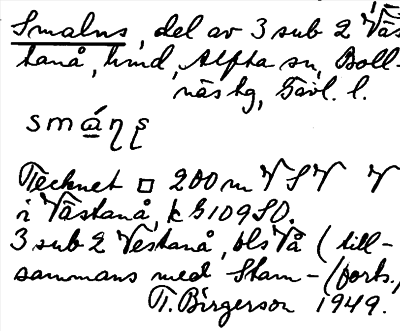 Smalns, del av 3 sub 2 Väs
tanå, hmd, Alfta sn, Boll-
näs tg, Gävl. l.
smáŋs
Tecknet □ 200 m V SV V
i Västanå, k G109 SO.
3 sub 2 Vestanå, bls Vå (till-
sammans med Stam- (forts.)
T. Birgerson 1949.